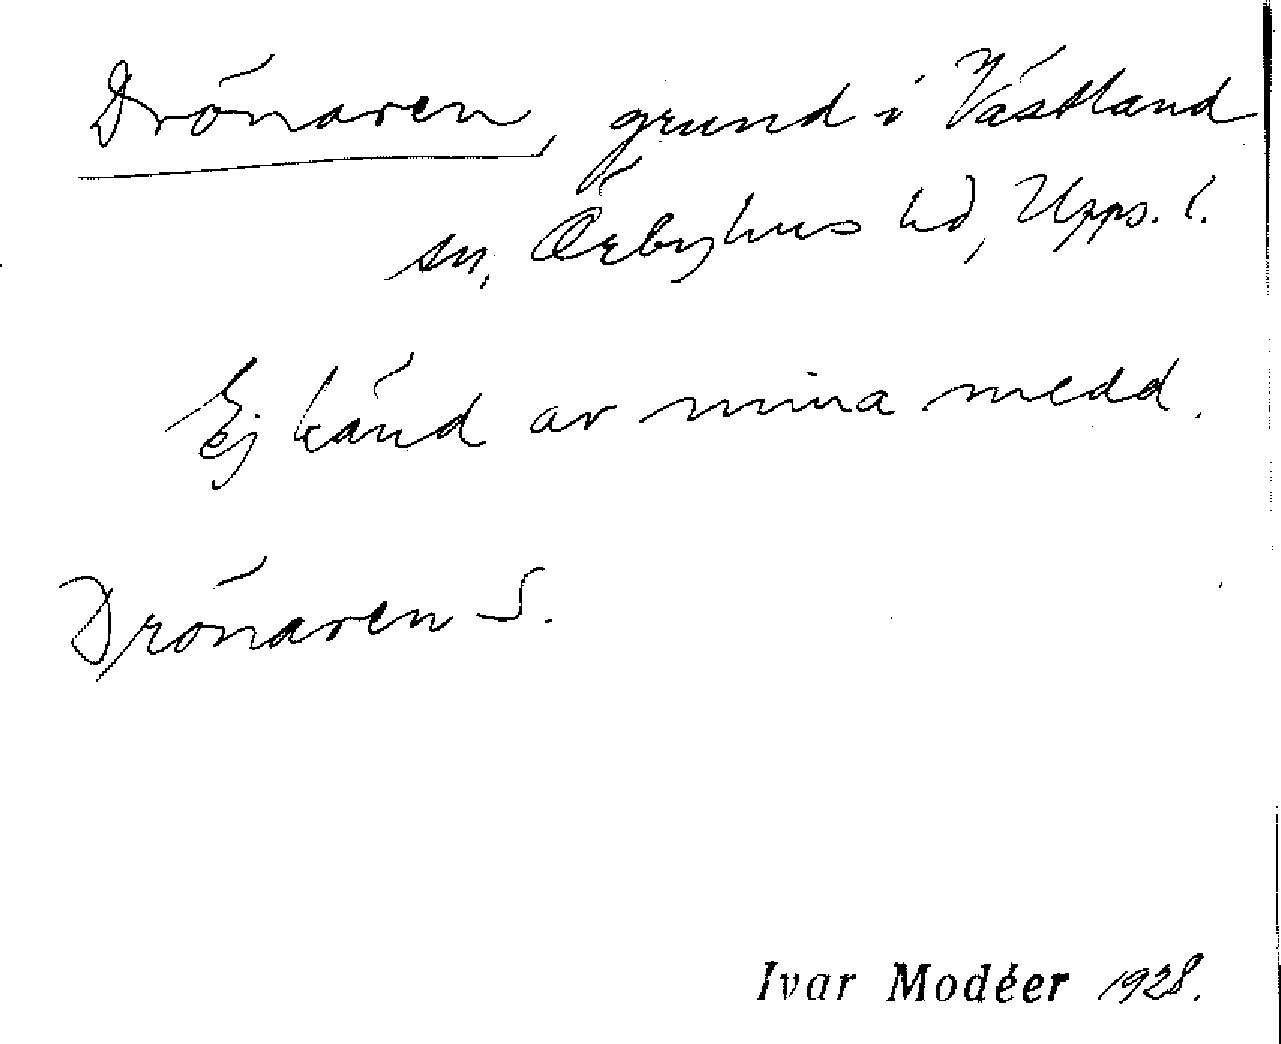 Drönaren, grund i Västland
sn, Örbyhus hd, Upps. l.
Ej känd av mina medd.
Drönaren S.
Ivar Modéer 1928.